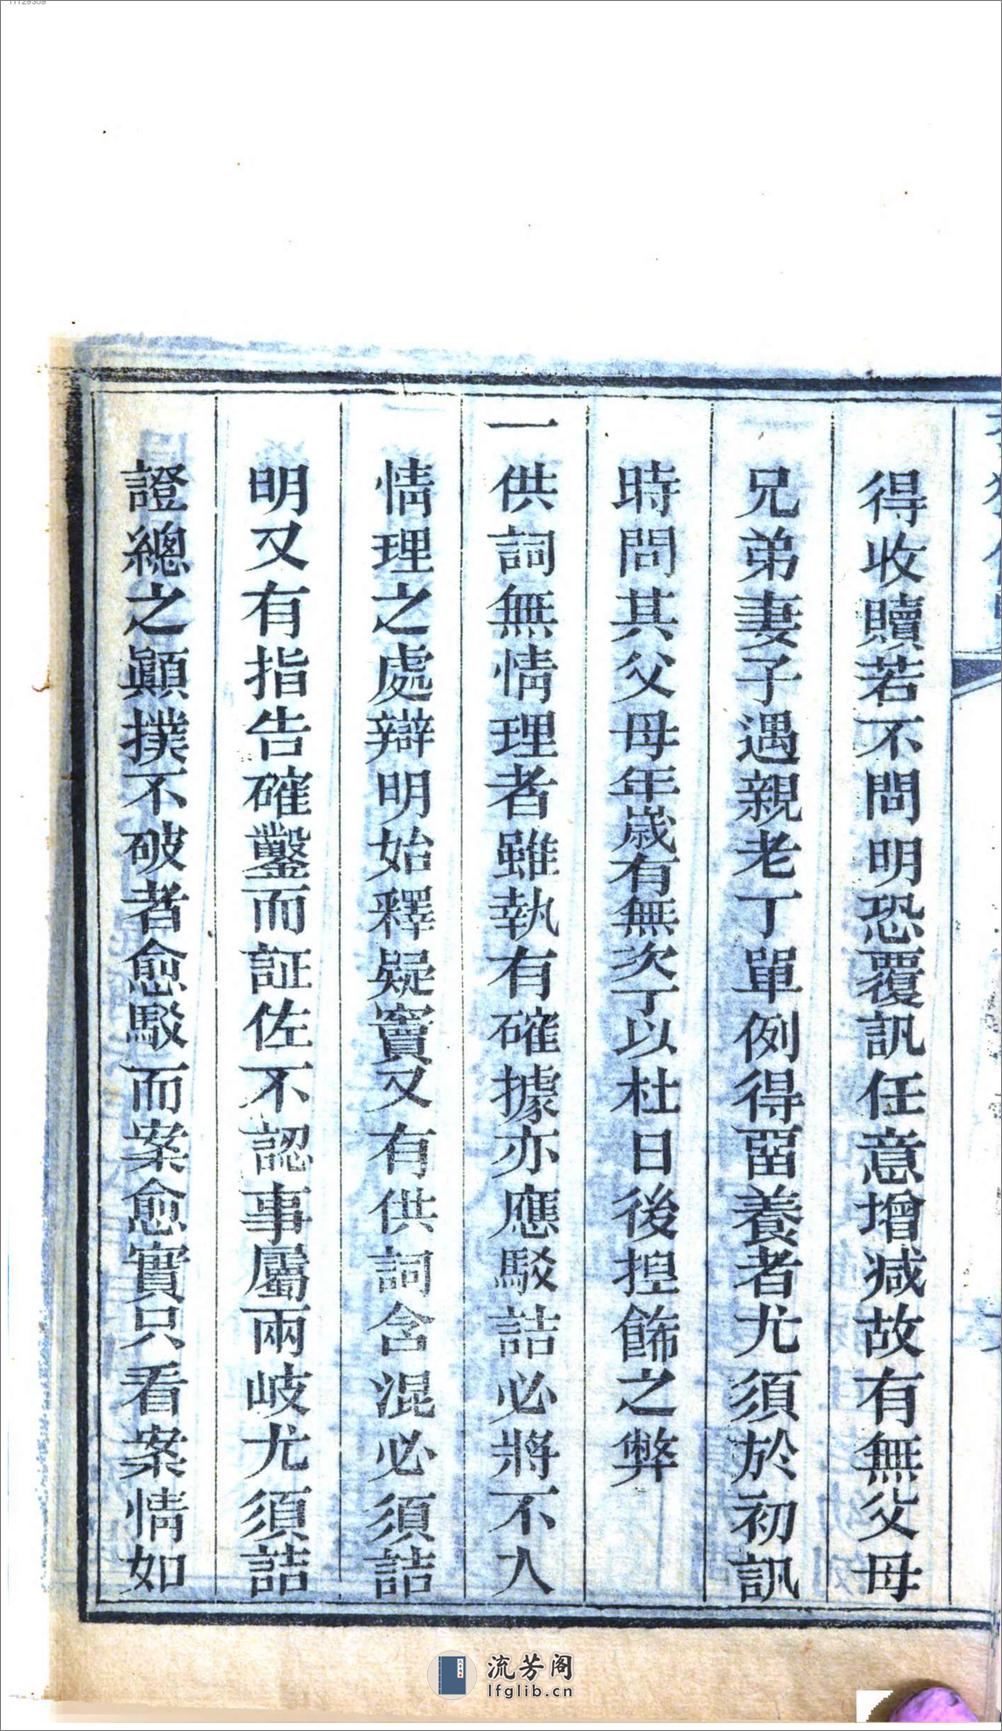 得收贖若不問明恐覆訊任意增减故有無父母
兄弟妻子遇親老丁單例得畱養者尤須於初訊
時問其父母年歲有無次丁以杜日後揑餙之弊
一供詞無情理者雖執有確據亦應駁詰必將不入
情理之處辯明始釋疑竇又有供詞含混必須詰
明又有指告確鑿而証佐不認事屬兩岐尤須詰
證總之顚撲不破者愈駁而案愈實只看案情如
流芳阁
lfglib.cn